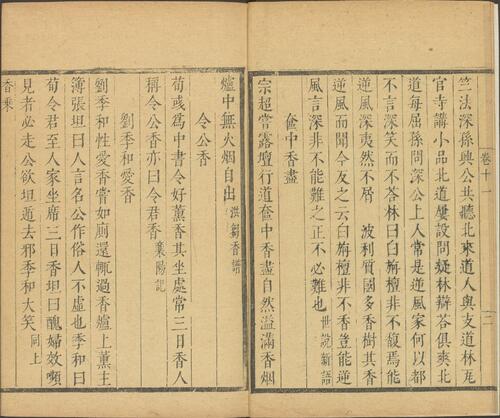 竺法深孫興公共聽北來道人與支道林瓦
官寺講小品北道屢設問疑林辯荅俱爽北
道每屈孫問深公上人常是逆風家何以都
不言深笑而不荅林曰白栴檀非不馥焉能
逆風深夷然不屑 波利質國多香樹其香
逆風而聞今反之云白栴檀非不香豈能逆
風言深非不能難之正不必難也 世說新語
奩中香盡
宗超嘗露壇行道奩中香盡自然溢滿香烟
卷十一
二
爐中無火烟自出 洪芻香譜
令公香
荀彧為中書令好薰香其坐處常三日香人
稱令公香亦曰令君香 襄陽記
劉季和愛香
劉季和性愛香嘗如廁還輒過香爐上薰主
簿張坦曰人言名公作俗人不虛也季和曰
荀令君至人家坐席三日香坦曰醜婦效顰
見者必走公欲坦遁去邪季和大笑 同上
香乘